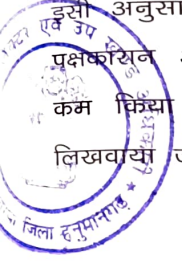 इसी अनुसा
पक्षकारान
कम किया
लिखवाया ज
एवं उप
जिला हनुमानगढ़